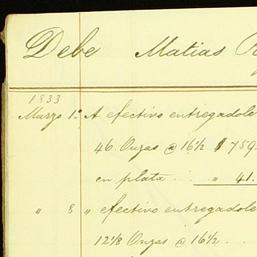 Debe Matias
1833
Marzo 1º A efectivo entregadole
46 Onzas @ 16½ $ 759.
en plata " 41.
" 8 " efectivo entregadole
12⅛ Onzas @ 16½